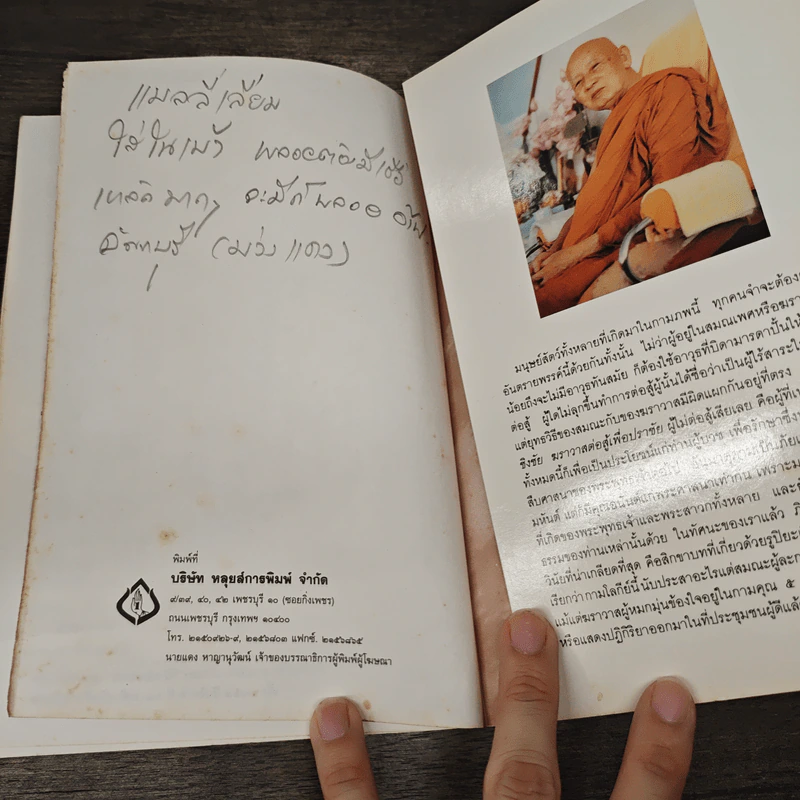 แมลลี่เลี่ยม
ใส่ในเบ้า พลอยต
เหลก มาก ๆ จะมีก้ พลอย
จันทบุรี (ม่วงแดง)
พิมพ์ที่
บริษัท หลุยส์การพิมพ์ จำกัด
๙/๓๙, ๔๐, ๔๒ เพชรบุรี ๑๐ (ซอยกิ่งเพชร)
ถนนเพชรบุรี กรุงเทพฯ ๑๐๔๐๐
โทร. ๒๑๕๐๙๒๖-๙, ๒๑๕๖๘๐๓ แฟกซ์. ๒๑๕๖๘๖๕
นายแดง หาญานุวัฒน์ เจ้าของบรรณาธิการผู้พิมพ์ผู้โฆษณา
มนุษย์สัตว์ทั้งหลายที่เกิดมาในกามภพนี้ ทุกคนจำจะต้อง
อันตรายพรรค์นี้ด้วยกันทั้งนั้น ไม่ว่าผู้อยู่ในสมณเพศหรือฆรา
น้อยถึงจะไม่มีอาวุธทันสมัย ก็ต้องใช้อาวุธที่บิดามารดาปั้นให้
ต่อสู้ ผู้ใดไม่ลุกขึ้นทำการต่อสู้ผู้นั้นได้ชื่อว่าเป็นผู้ไร้สาระใ
แต่ยุทธวิธีของสมณะกับของฆราวาสมีผิดแผกกันอยู่ที่ตรง
ชิงชัย ฆราวาสต่อสู้เพื่อปราชัย ผู้ไม่ต่อสู้เสียเลย คือผู้ที่เ
ทั้งหมดนี้ก็เพื่อเป็นประโยชน์แก่ท่านผู้บวช เพื่อรักษาซึ่ง
สืบศาสนาของพระพุทธ
มหันต์ แต่ก็มีคุณอนันต์แก่พระศาสนาเท่ากัน เพราะม
ที่เกิดของพระพุทธเจ้าและพระสาวกทั้งหลาย และ
ธรรมของท่านเหล่านั้นด้วย ในทัศนะของเราแล้ว ภิ
วินัยที่น่าเกลียดที่สุด คือสิกขาบทที่เกี่ยวด้วยรูปิยะ
เรียกว่ากามโลกีย์นี้นับประสาอะไรแต่สมณะผู้ละก
แม้แต่ฆราวาสผู้หมกมุ่นข้องใจอยู่ในกามคุณ ๕
หรือแสดงปฏิกิริยาออกมาในที่ประชุมชนผู้ดีแล้